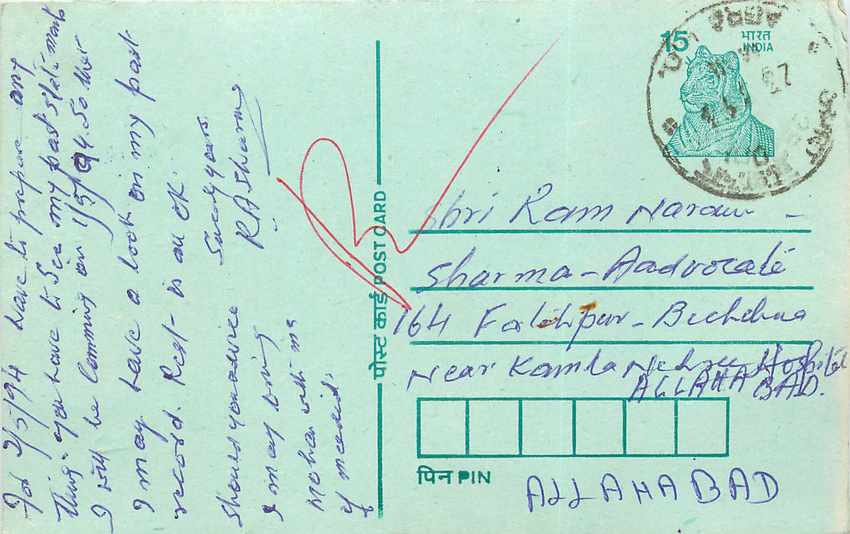 For 2/5/94 have to prepare any
thing. you have to see my past statements
I will be Comming on 1/5/94. So that
I may have a look on my past
record. Rest is an OK.
Sincerely yours
R A Sharma
Should you advice
I may bring
Mohan with me
if needed.
पोस्ट कार्ड POST CARD
15
भारत
INDIA
AGRA
Shri Ram Narain -
Sharma - Aadvocate
164 Fatehpur - Bichhua
Near Kamla Nehru Hospital
ALLAHABAD.
पिन PIN
ALLAHABAD